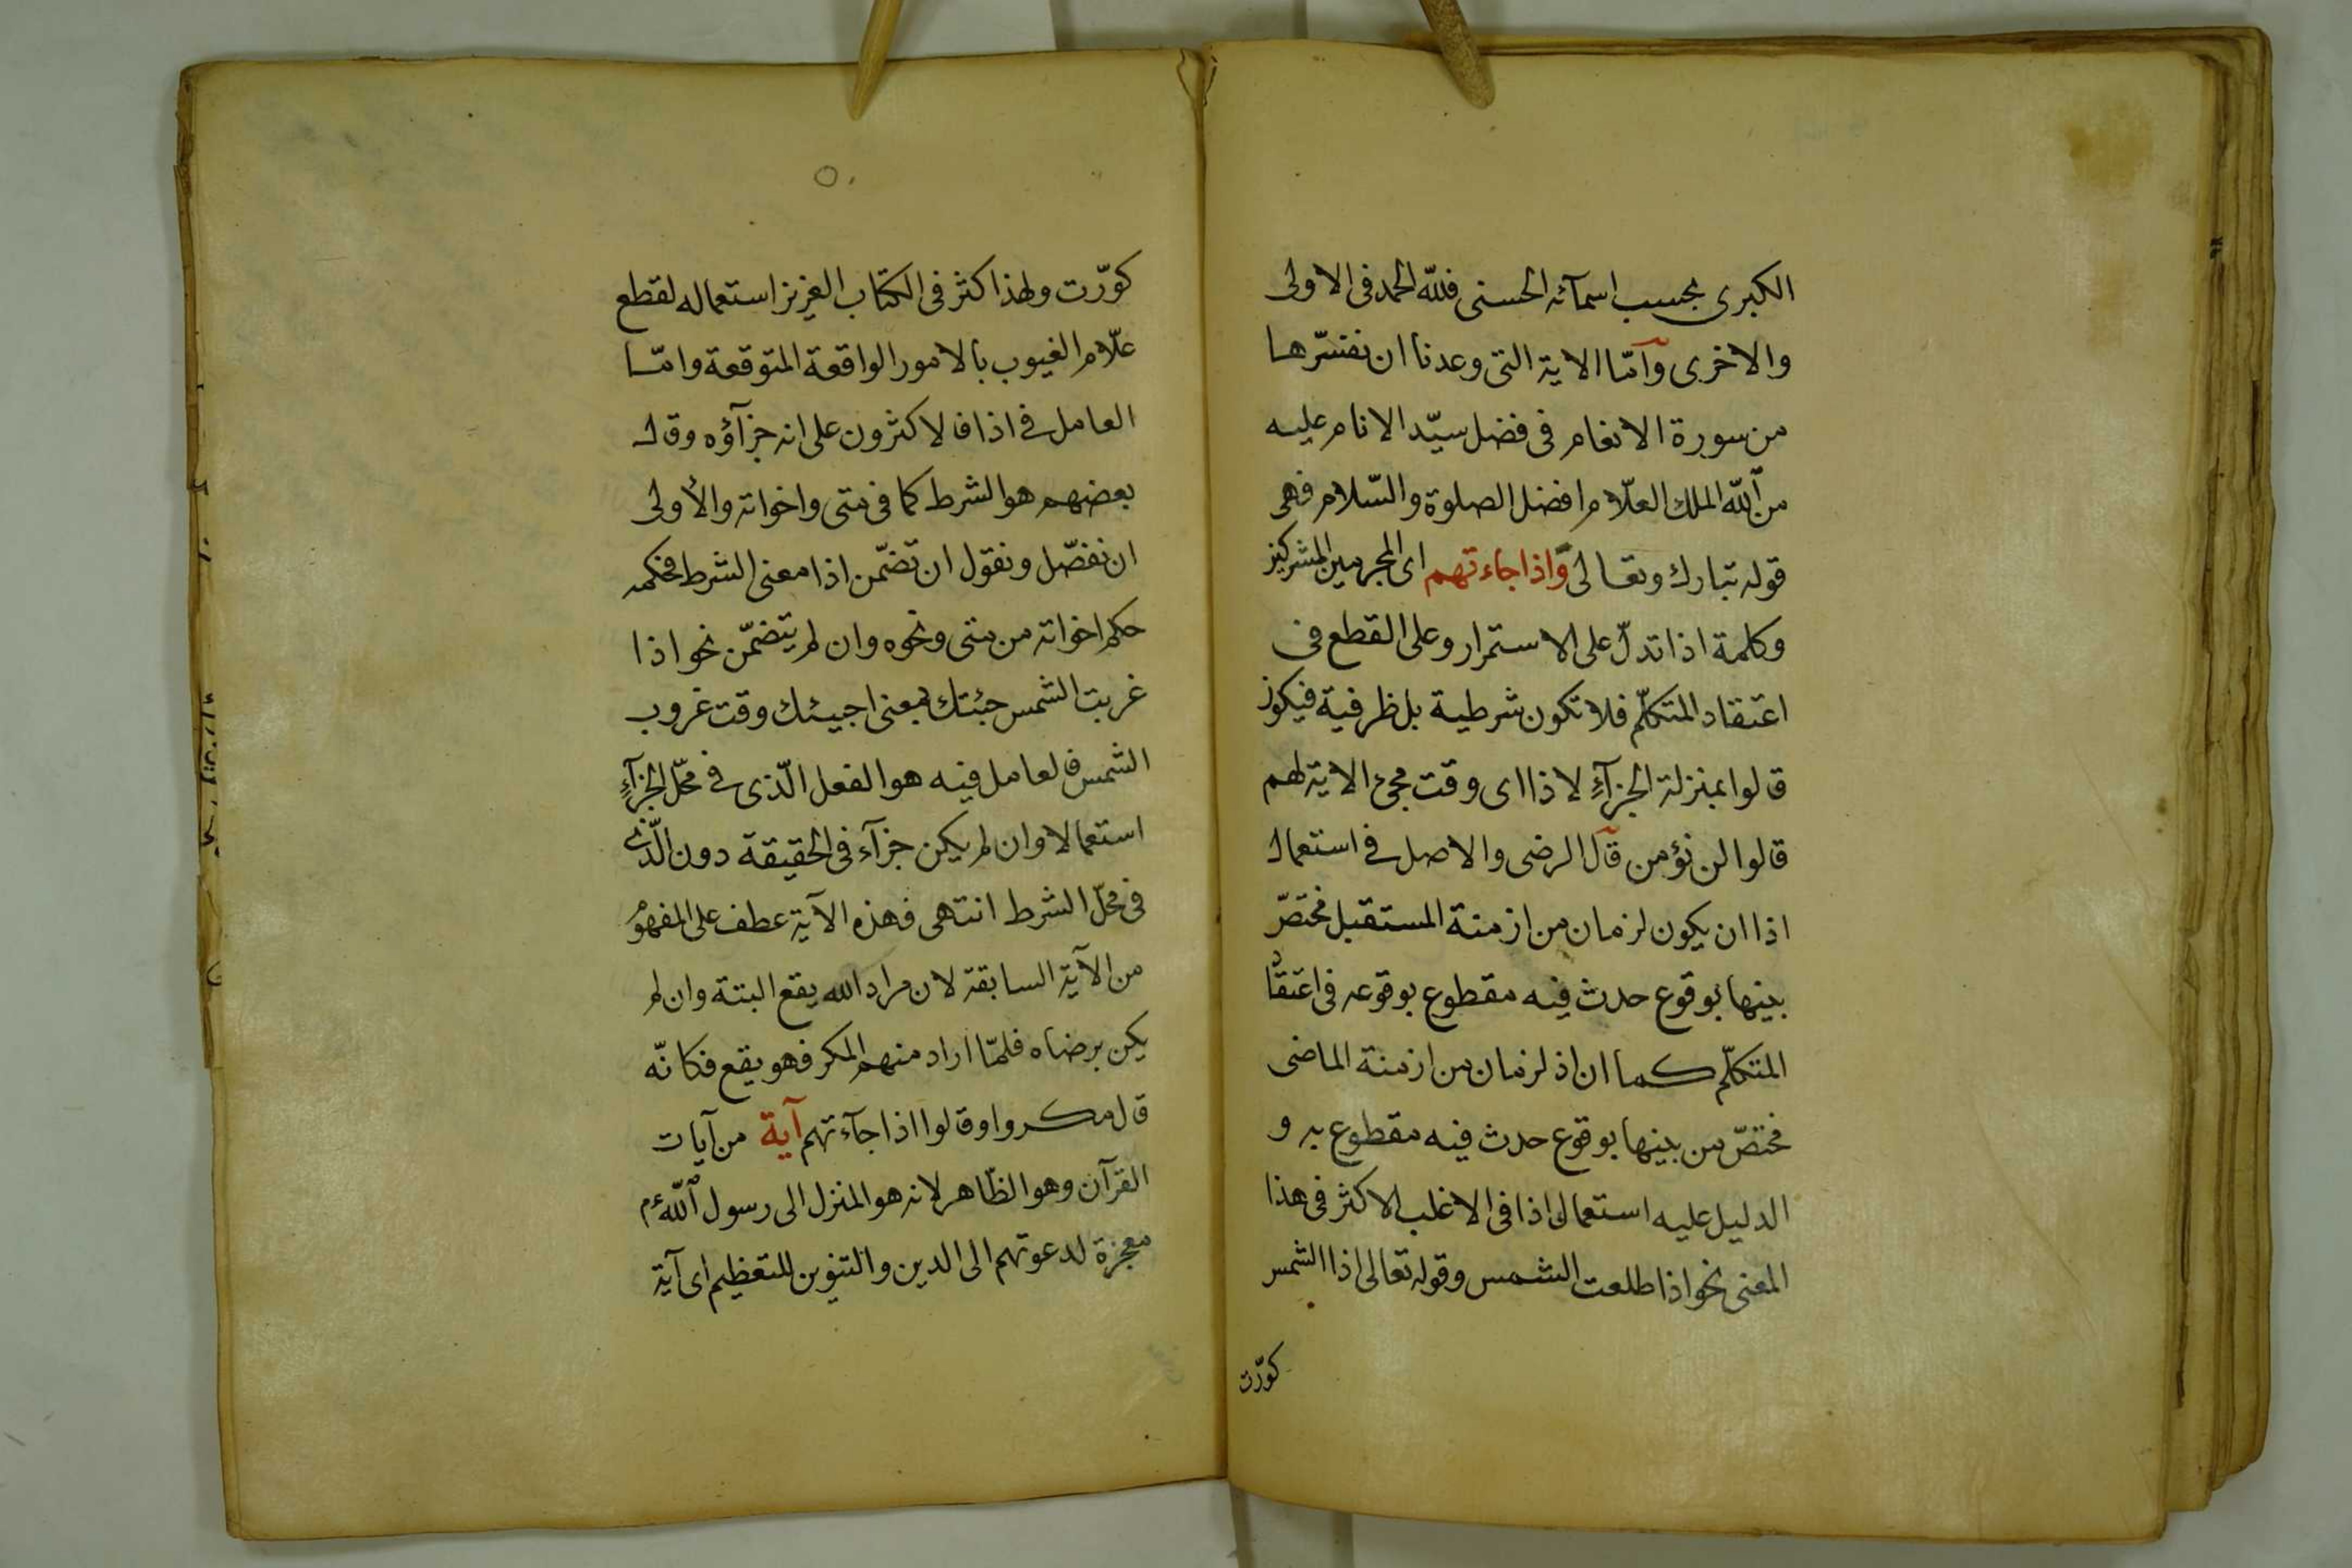 الكبرى بحسب اسمآئه الحسنى فلله الحمد فى الاولى
والاخرى وآمّا الاية التى وعدنا ان نفسّرها
من سورة الانعام فى فضل سيّد الانام عليه
من الله الملك العلّام افضل الصلوة والسّلام فهى
قوله تبارك وتعالى واذا جاءتهم اى المجرمين المشركين
وكلمة اذا تدلّ على الاستمرار وعلى القطع فى
اعتقاد المتكلّم فلا تكون شرطية بل ظرفية فيكون
قالوا بمنزلة الجزآءِ لاذا اى وقت مجئ الاية لهم
قالوا لن نؤمن قال الرضى والاصل فى استعمال
اذا ان يكون لزمان من ازمنة المستقبل مختصّ
بينها بوقوع حدث فيه مقطوع بوقوعه فى اعتقاد
المتكلّم كما ان اذ لزمان من ازمنة الماضى
مختصّ من بينها بوقوع حدث فيه مقطوع به و
الدليل عليه استعمال اذا فى الاغلب الاكثر فى هذا
المعنى نحو اذا طلعت الشمس وقوله تعالى اذا الشمس
كوّرت
كوّرت ولهذا كثر فى الكتاب العزيز استعماله لقطع
علّام الغيوب بالامور الواقعة المتوقعة وامّا
العامل فى اذا فالاكثرون على انه جزآؤه وقال
بعضهم هو الشرط كما فى متى واخواته والأولى
ان نفصّل ونقول ان تضمّن اذا معنى الشرط فحكمه
حكم اخواته من متى ونحوه وان لم يتضمّن نحو اذا
غربت الشمس جئتك بمعنى اجيئك وقت غروب
الشمس فالعامل فيه هو الفعل الّذى فى محلّ الجزآءِ
استعمالا وان لم يكن جزآء فى الحقيقة دون الّذى
فى محلّ الشرط انتهى فهذه الآية عطف على المفهوم
من الآية السابقة لان مراد الله يقع البتة وان لم
يكن برضاه فلمّا اراد منهم المكر فهو يقع فكانّه
قال مكروا وقالوا اذا جآءتهم آية من آيات
القرآن وهو الظّاهر لانه هو المنزل الى رسول الله ءم
معجزة لدعوتهم الى الدين والتنوين للتعظيم اى آية